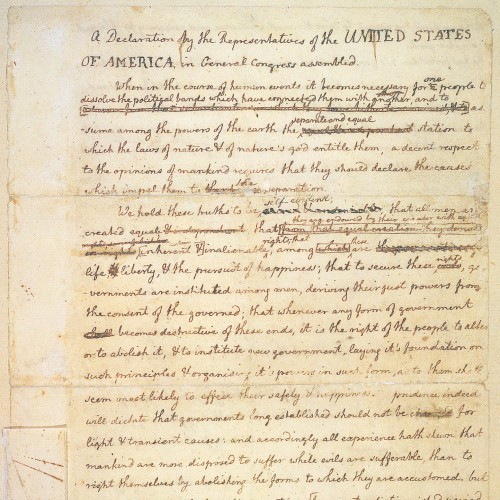 A Declaration by the Representatives of the UNITED STATES
OF AMERICA, in General Congress assembled.
When in the course of human events it becomes necessary for one people to
dissolve the political bands which have connected them with another, and to
as-
separate and equal
sume among the powers of the earth the station to
which the laws of nature & of nature's god entitle them, a decent respect
to the opinions of mankind requires that they should declare the causes
which impel them to the separation.
self-evident;
We hold these truths to be that all men are
they are endowed by their creator with
created equal & that from that equal creation they derive
rights; that
inherent & inalienable, among which are these
rights
life & liberty, & the pursuit of happiness; that to secure these ends, go-
vernments are instituted among men, deriving their just powers from
the consent of the governed; that whenever any form of government
shall becomes destructive of these ends, it is the right of the people to alter
or to abolish it, & to institute new government, laying it's foundation on
such principles & organising it's powers in such form, as to them shall
seem most likely to effect their safety & happiness. prudence indeed
will dictate that governments long established should not be for
light & transient causes: and accordingly all experience hath shewn that
mankind are more disposed to suffer while evils are sufferable, than to
right themselves by abolishing the forms to which they are accustomed. but